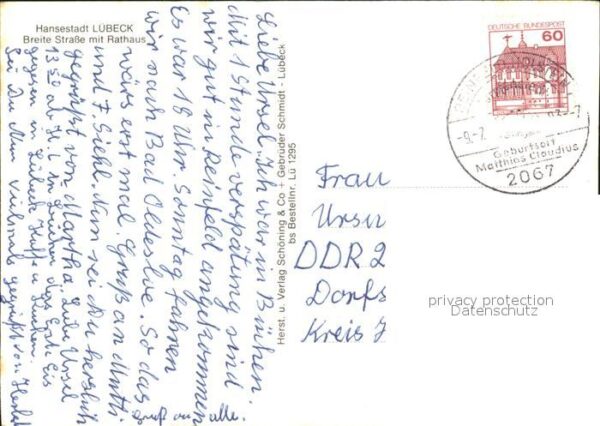 Hansestadt LÜBECK
Breite Straße mit Rathaus
Liebe Ursel. Ich war in Büchen.
Mit 1 Stunde verspätung sind
wir gut in Reinfeld angekommen
Es war 18 Uhr. Sonntag fahren
wir nach Bad Oldesloe. So das
wärs erst mal. Gruß an Mutti
und F. Nun sei Du herzlich
gegrüßt von Martha Liebe Ursel
13 50 ab H. in das Erste Eis
gegessen in
Sei Du vielmals gegrüßt von
Gruß an alle.
Herst. u. Verlag Schöning & Co + Gebrüder Schmidt - Lübeck
bs Bestellnr. Lü 1295
DEUTSCHE BUNDESPOST
60
-9-7
Geburtsort
Matthias Claudius
2067
Frau
Ursu
DDR 2
Dorfs
Kreis J
privacy protection
Datenschutz